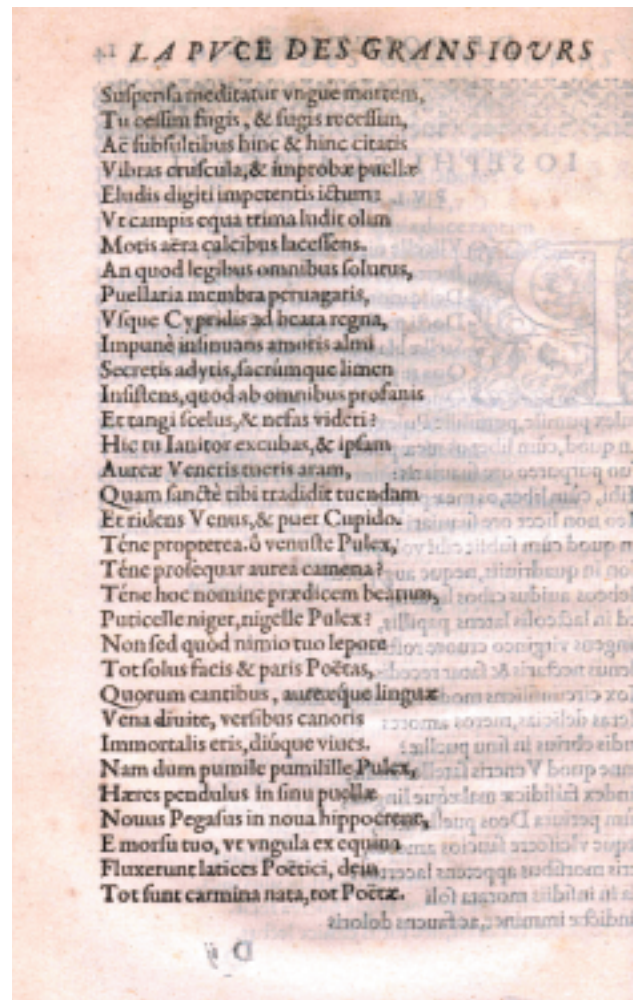 14 LA PVCE DES GRANS IOVRS
Suspensa meditatur vngue mortem,
Tu cessim fugis, & fugis recessim,
Ac subsultibus hinc & hinc citatis
Vibras cruscula, & improbæ puellæ
Eludis digiti impetentis ictum:
Vt campis equa trima ludit olim
Motis aëra calcibus lacessens.
An quod legibus omnibus solutus,
Puellaria membra peruagaris,
Vsque Cypridis ad beata regna,
Impunè insinuans amoris almi
Secretis adytis, sacrúmque limen
Insistens, quod ab omnibus profanis
Et tangi scelus, & nefas videri?
Hic tu Ianitor excubas, & ipsam
Aureæ Veneris tueris aram,
Quam sanctè tibi tradidit tuendam
Et ridens Venus, & puer Cupido.
Téne propterea. ô venuste Pulex,
Téne prosequar aureâ camena?
Téne hoc nomine prædicem beatum,
Puticelle niger, nigelle Pulex?
Non sed quòd nimio tuo lepore
Tot solus facis & paris Poëtas,
Quorum cantibus, aureæque linguæ
Vena diuite, versibus canoris
Immortalis eris, diúque viues.
Nam dum pumile pumilille Pulex,
Hæres pendulus in sinu puellæ
Nouus Pegasus in noua hippocrene,
E morsu tuo, vt vngula ex equina
Fluxerunt latices Poëtici, dein
Tot sunt carmina nata, tot Poëtæ.